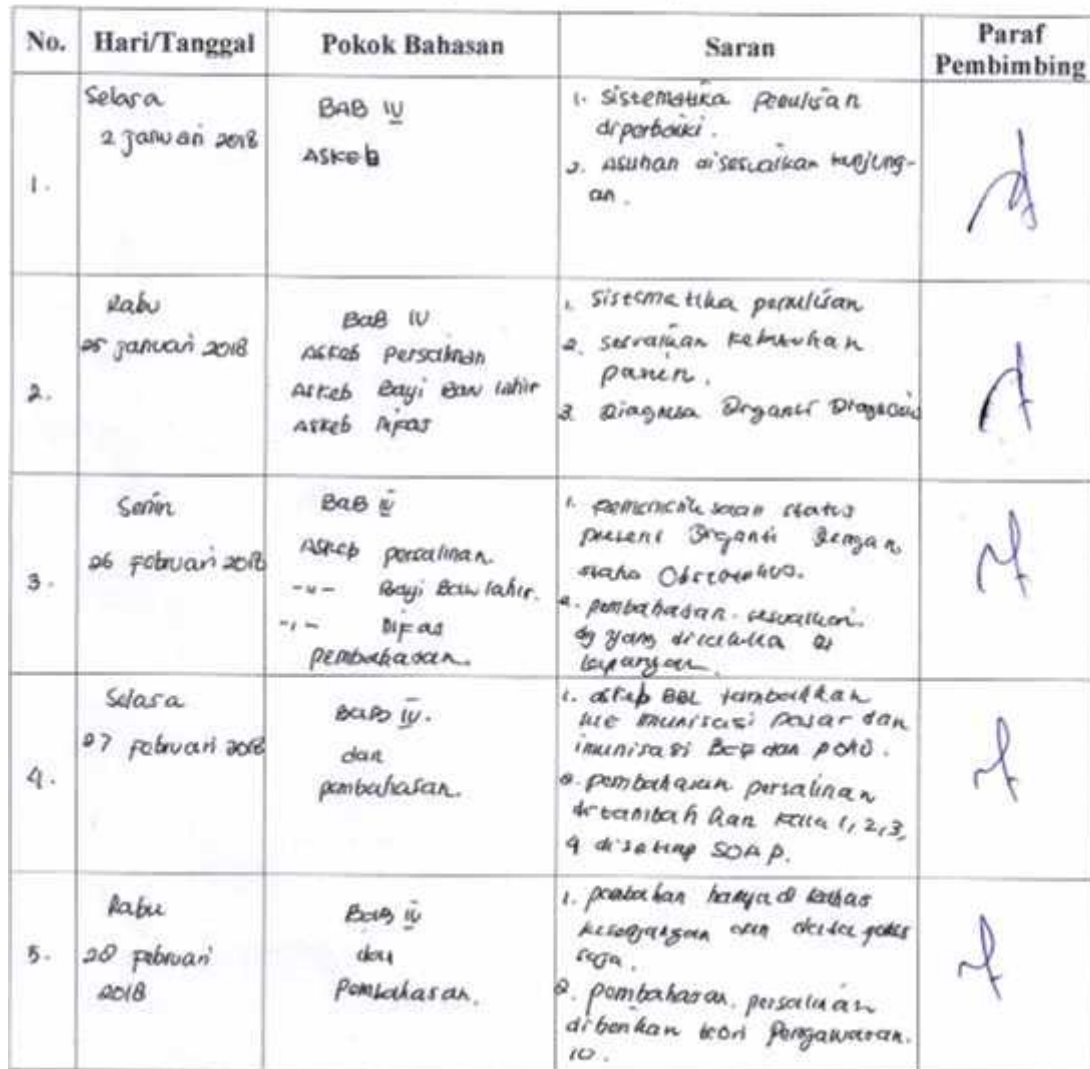 No. Hari/Tanggal Pokok Bahasan Saran Paraf Pembimbing
1.
Selasa
2 Januari 2018
BAB IV
Askeb
1. Sistematika Penulisan
diperbaiki.
2. Asuhan disesuaikan kunjung-
an.
2.
Rabu
25 Januari 2018
BAB IV
Askeb Persalinan
Askeb Bayi Baru lahir
Askeb Nifas
1. Sistematika penulisan
2. Sesuaikan kebutuhan
pasien.
3. Diagnosa Diganti Diagnosis
3.
Senin
26 Februari 2018
BAB IV
Askeb persalinan.
-"- Bayi Baru lahir.
-"- Nifas
pembahasan.
1. pemeriksaan status
present Diganti Dengan
status Obstetrikus.
2. pembahasan sesuaikan
dg yang di
lapangan.
4.
Selasa
27 Februari 2018
BAB IV.
dan
pembahasan.
1. askeb BBL tambahkan
KIE imunisasi Dasar dan
imunisasi BCG dan polio.
2. pembahasan persalinan
ditambahkan Kala 1, 2, 3,
4 disetiap SOAP.
5.
Rabu
28 Februari
2018
BAB IV
dan
Pembahasan.
1. hanya di bahas
kesenjangan dan
saja.
2. pembahasan persalinan
diberikan teori Pengawasan.
10.